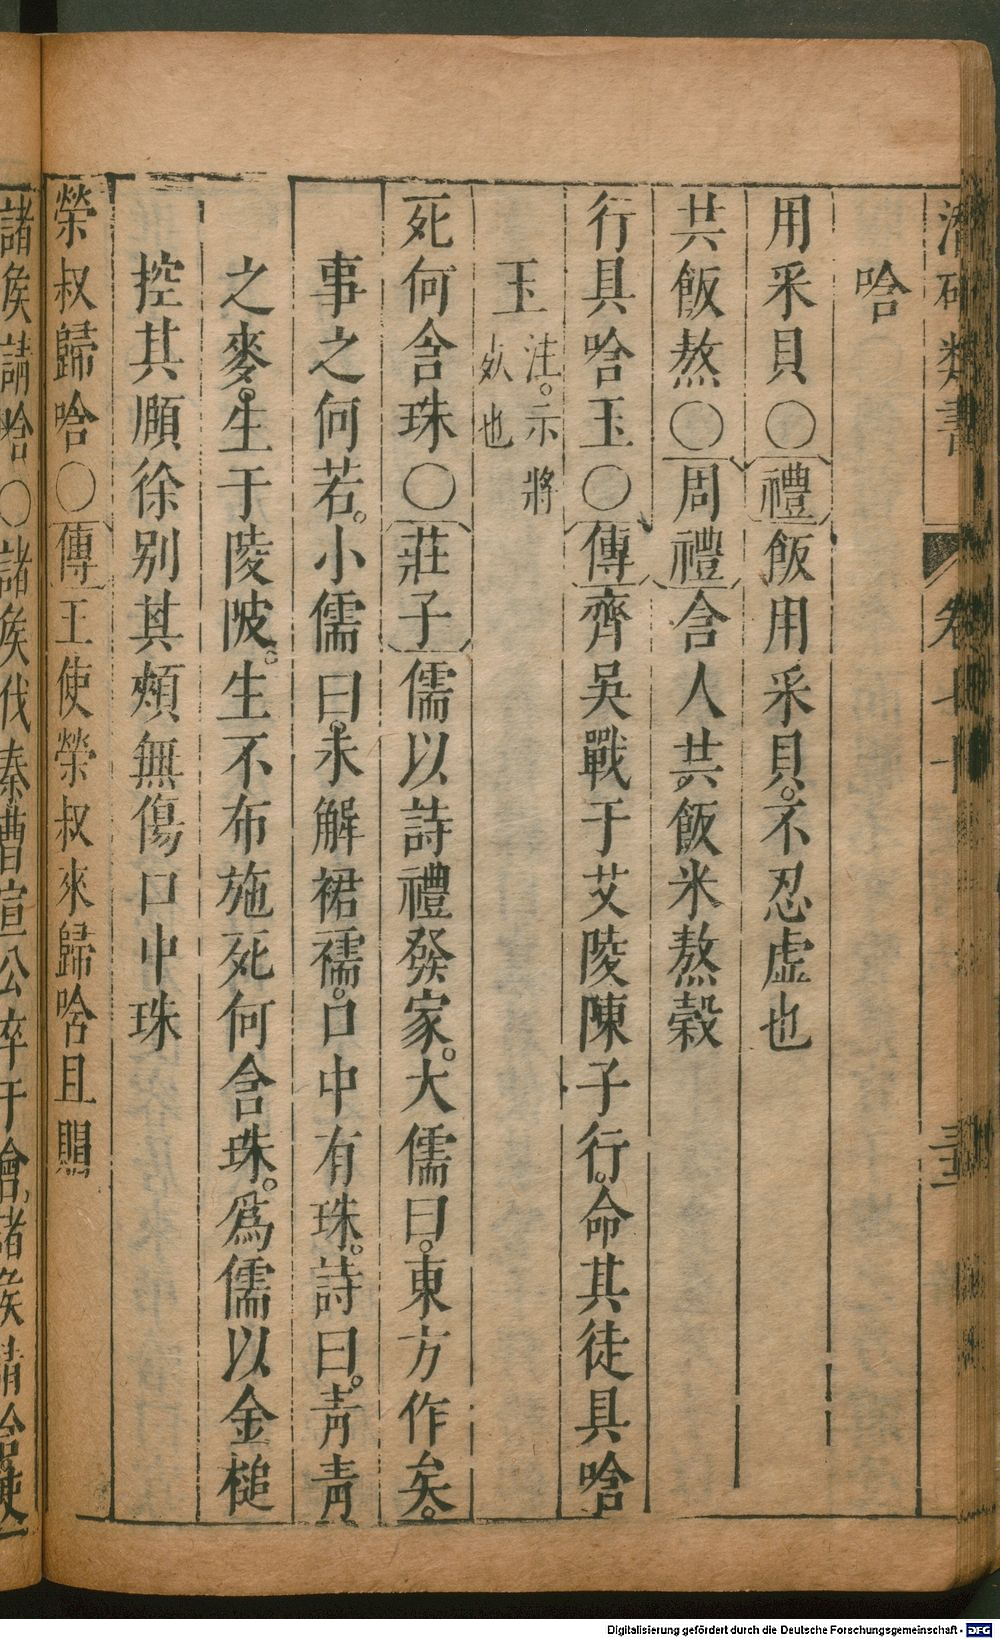 潛確類書 卷七十 三十三
唅
用米貝○禮飯用米貝。不忍虛也
共飯熬○周禮含人共飯米熬穀
行具唅玉○傳齊吳戰于艾陵陳子行。命其徒具唅
玉注。示將
㱙也
死何含珠○莊子儒以詩禮發冢。大儒曰。東方作矣。
事之何若。小儒曰。未解裙襦。口中有珠。詩曰。青青
之麥。生于陵陂。生不布施死何含珠。爲儒以金槌
控其頤徐别其頰無傷口中珠
榮叔歸唅○傳王使榮叔來歸唅且賵
諸矦請唅○諸矦伐秦曹宣公卒于會。諸矦請唅。使
Digitalisierung gefördert durch die Deutsche Forschungsgemeinschaft - DFG